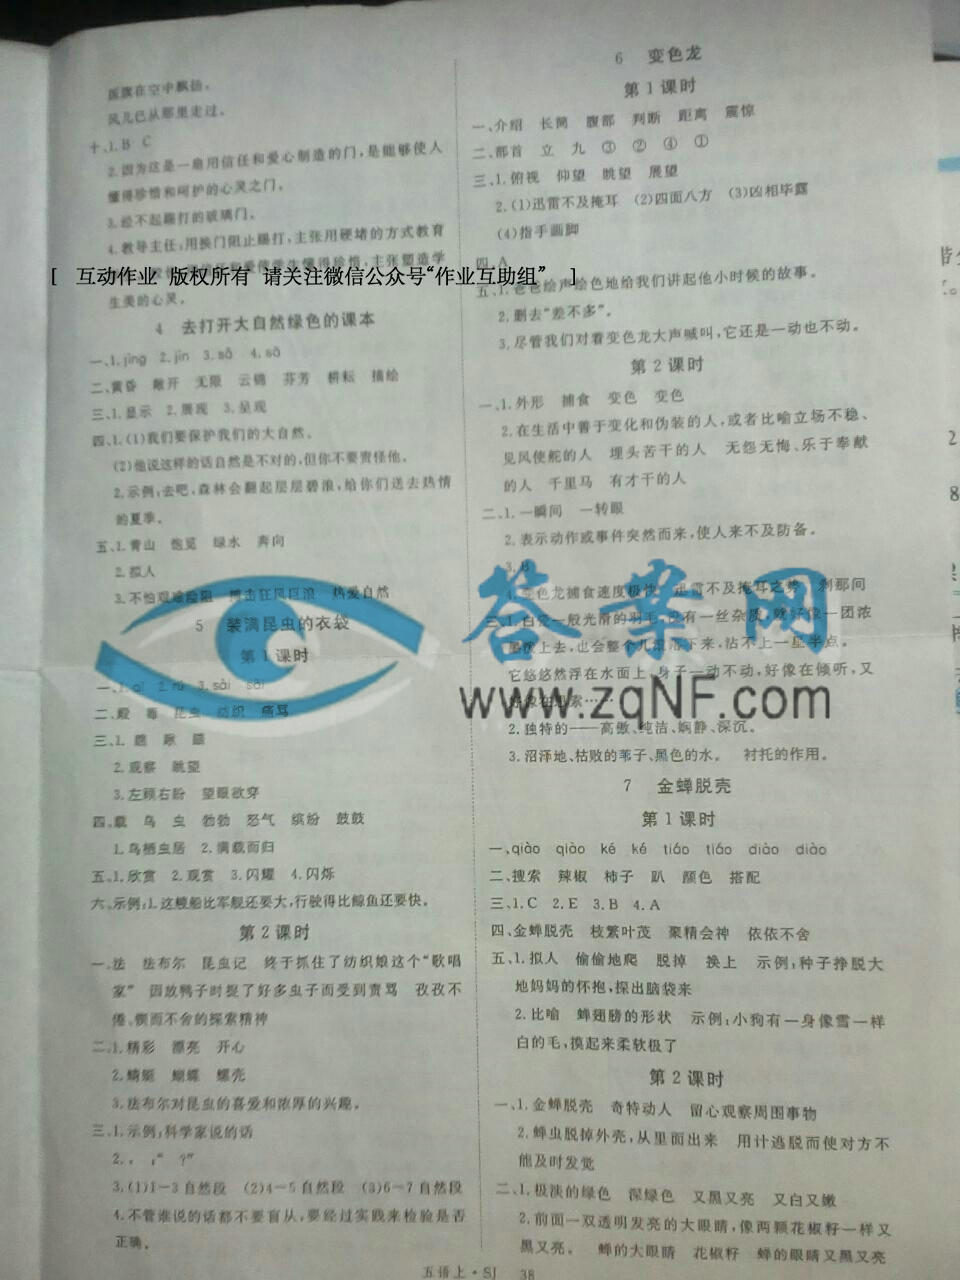 医旗在空中飘扬。
风儿已从那里走过。
十、1.B C
2.因为这是一扇用信任和爱心制造的门,是能够使人
懂得珍惜和呵护的心灵之门。
3.经不起踢打的玻璃门。
4.教导主任:用换门阻止踢打,主张用硬堵的方式教育
[ 互动作业 版权所有 请关注微信公众号“作业互助组” ]
生美的心灵。
4 去打开大自然绿色的课本
一、1.jìng 2.jìn 3.sǒ 4.sō
二、黄昏 敞开 无限 云锦 芬芳 耕耘 描绘
三、1.显示 2.展现 3.呈现
四、1.(1)我们要保护我们的大自然。
(2)他说这样的话自然是不对的,但你不要责怪他。
2.示例:去吧,森林会翻起层层碧浪,给你们送去热情
的夏季。
五、1.青山 饱览 绿水 奔向
2.拟人
3.不怕艰难险阻 搏击狂风巨浪 热爱自然
5 装满昆虫的衣袋
第1课时
二、殿 毒 昆虫 纺织 痛骂
三、1.
2.观察 眺望
3.左顾右盼 望眼欲穿
四、载 鸟 虫 勃勃 怒气 缤纷 鼓鼓
1.鸟栖虫居 2.满载而归
五、1.欣赏 2.观赏 3.闪耀 4.闪烁
六、示例:1.这艘船比军舰还要大,行驶得比鲸鱼还要快。
第2课时
一、法 法布尔 昆虫记 终于抓住了纺织娘这个“歌唱
家” 因放鸭子时捉了好多虫子而受到责骂 孜孜不
倦、锲而不舍的探索精神
二、1.精彩 漂亮 开心
2.蜻蜓 蝴蝶 螺壳
3.法布尔对昆虫的喜爱和浓厚的兴趣。
三、1.示例:科学家说的话
2.， :“ ？”
3.(1)1—3自然段 (2)4—5自然段 (3)6—7自然段
4.不管谁说的话都不要盲从,要经过实践来检验是否
正确。
6 变色龙
第1课时
一、介绍 长筒 腹部 判断 距离 震惊
二、部首 立 九 ③ ② ④ ①
三、1.俯视 仰望 眺望 展望
2.(1)迅雷不及掩耳 (2)四面八方 (3)凶相毕露
(4)指手画脚
四、A
五、1.爸爸绘声绘色地给我们讲起他小时候的故事。
2.删去“差不多”。
3.尽管我们对着变色龙大声喊叫,它还是一动也不动。
第2课时
一、1.外形 捕食 变色 变色
2.在生活中善于变化和伪装的人,或者比喻立场不稳、
见风使舵的人 埋头苦干的人 无怨无悔、乐于奉献
的人 千里马 有才干的人
二、1.一瞬间 一转眼
2.表示动作或事件突然而来,使人来不及防备。
3.B
4.变色龙捕食速度极快 迅雷不及掩耳之势 刹那间
三、1.白瓷一般光滑的羽毛,没有一丝杂质,就好像一团浓
墨滴上去,也会整个儿滚落下来,沾不上一星半点。
它悠悠然浮在水面上,身子一动不动,好像在倾听,又
答案网
www.zqNF.com
2.独特的——高傲、纯洁、娴静、深沉。
3.沼泽地、枯败的苇子、黑色的水。 衬托的作用。
7 金蝉脱壳
第1课时
一、qiào qiào ké ké tiáo tiáo diào diào
二、搜索 辣椒 柿子 趴 颜色 搭配
三、1.C 2.E 3.B 4.A
四、金蝉脱壳 枝繁叶茂 聚精会神 依依不舍
五、1.拟人 偷偷地爬 脱掉 换上 示例:种子挣脱大
地妈妈的怀抱,探出脑袋来
2.比喻 蝉翅膀的形状 示例:小狗有一身像雪一样
白的毛,摸起来柔软极了
第2课时
一、1.金蝉脱壳 奇特动人 留心观察周围事物
2.蝉虫脱掉外壳,从里面出来 用计逃脱而使对方不
能及时发觉
二、1.极淡的绿色 深绿色 又黑又亮 又白又嫩
2.前面一双透明发亮的大眼睛,像两颗花椒籽一样又
黑又亮。 蝉的大眼睛 花椒籽 蝉的眼睛又黑又亮
五语上·SJ 38